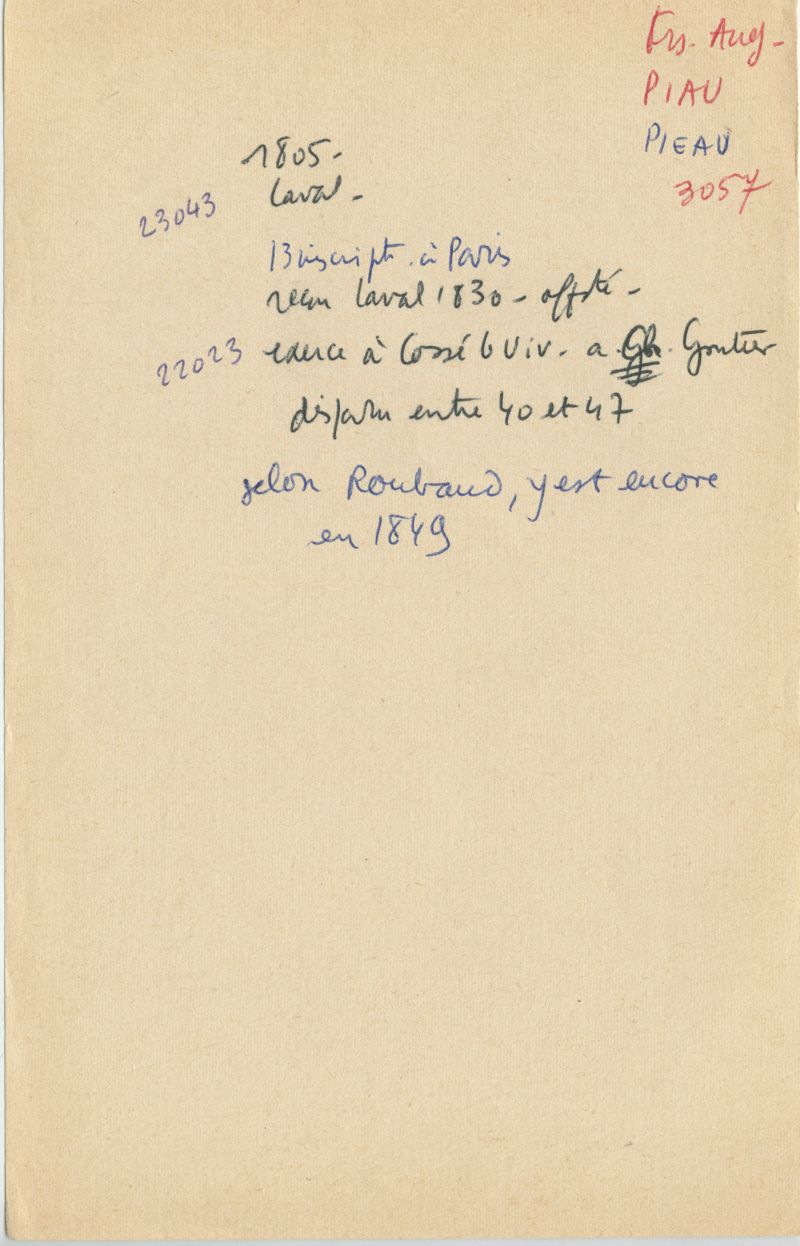 Frs. Aug-
PIAU
PIEAU
3057
1805-
Laval-
23043
13 inscript. à Paris
reçu Laval 1830 - offsté -
22023
exerce à Cossé le Viv- a Gontier
disparu entre 40 et 47
selon Roubaud, y est encore
en 1849